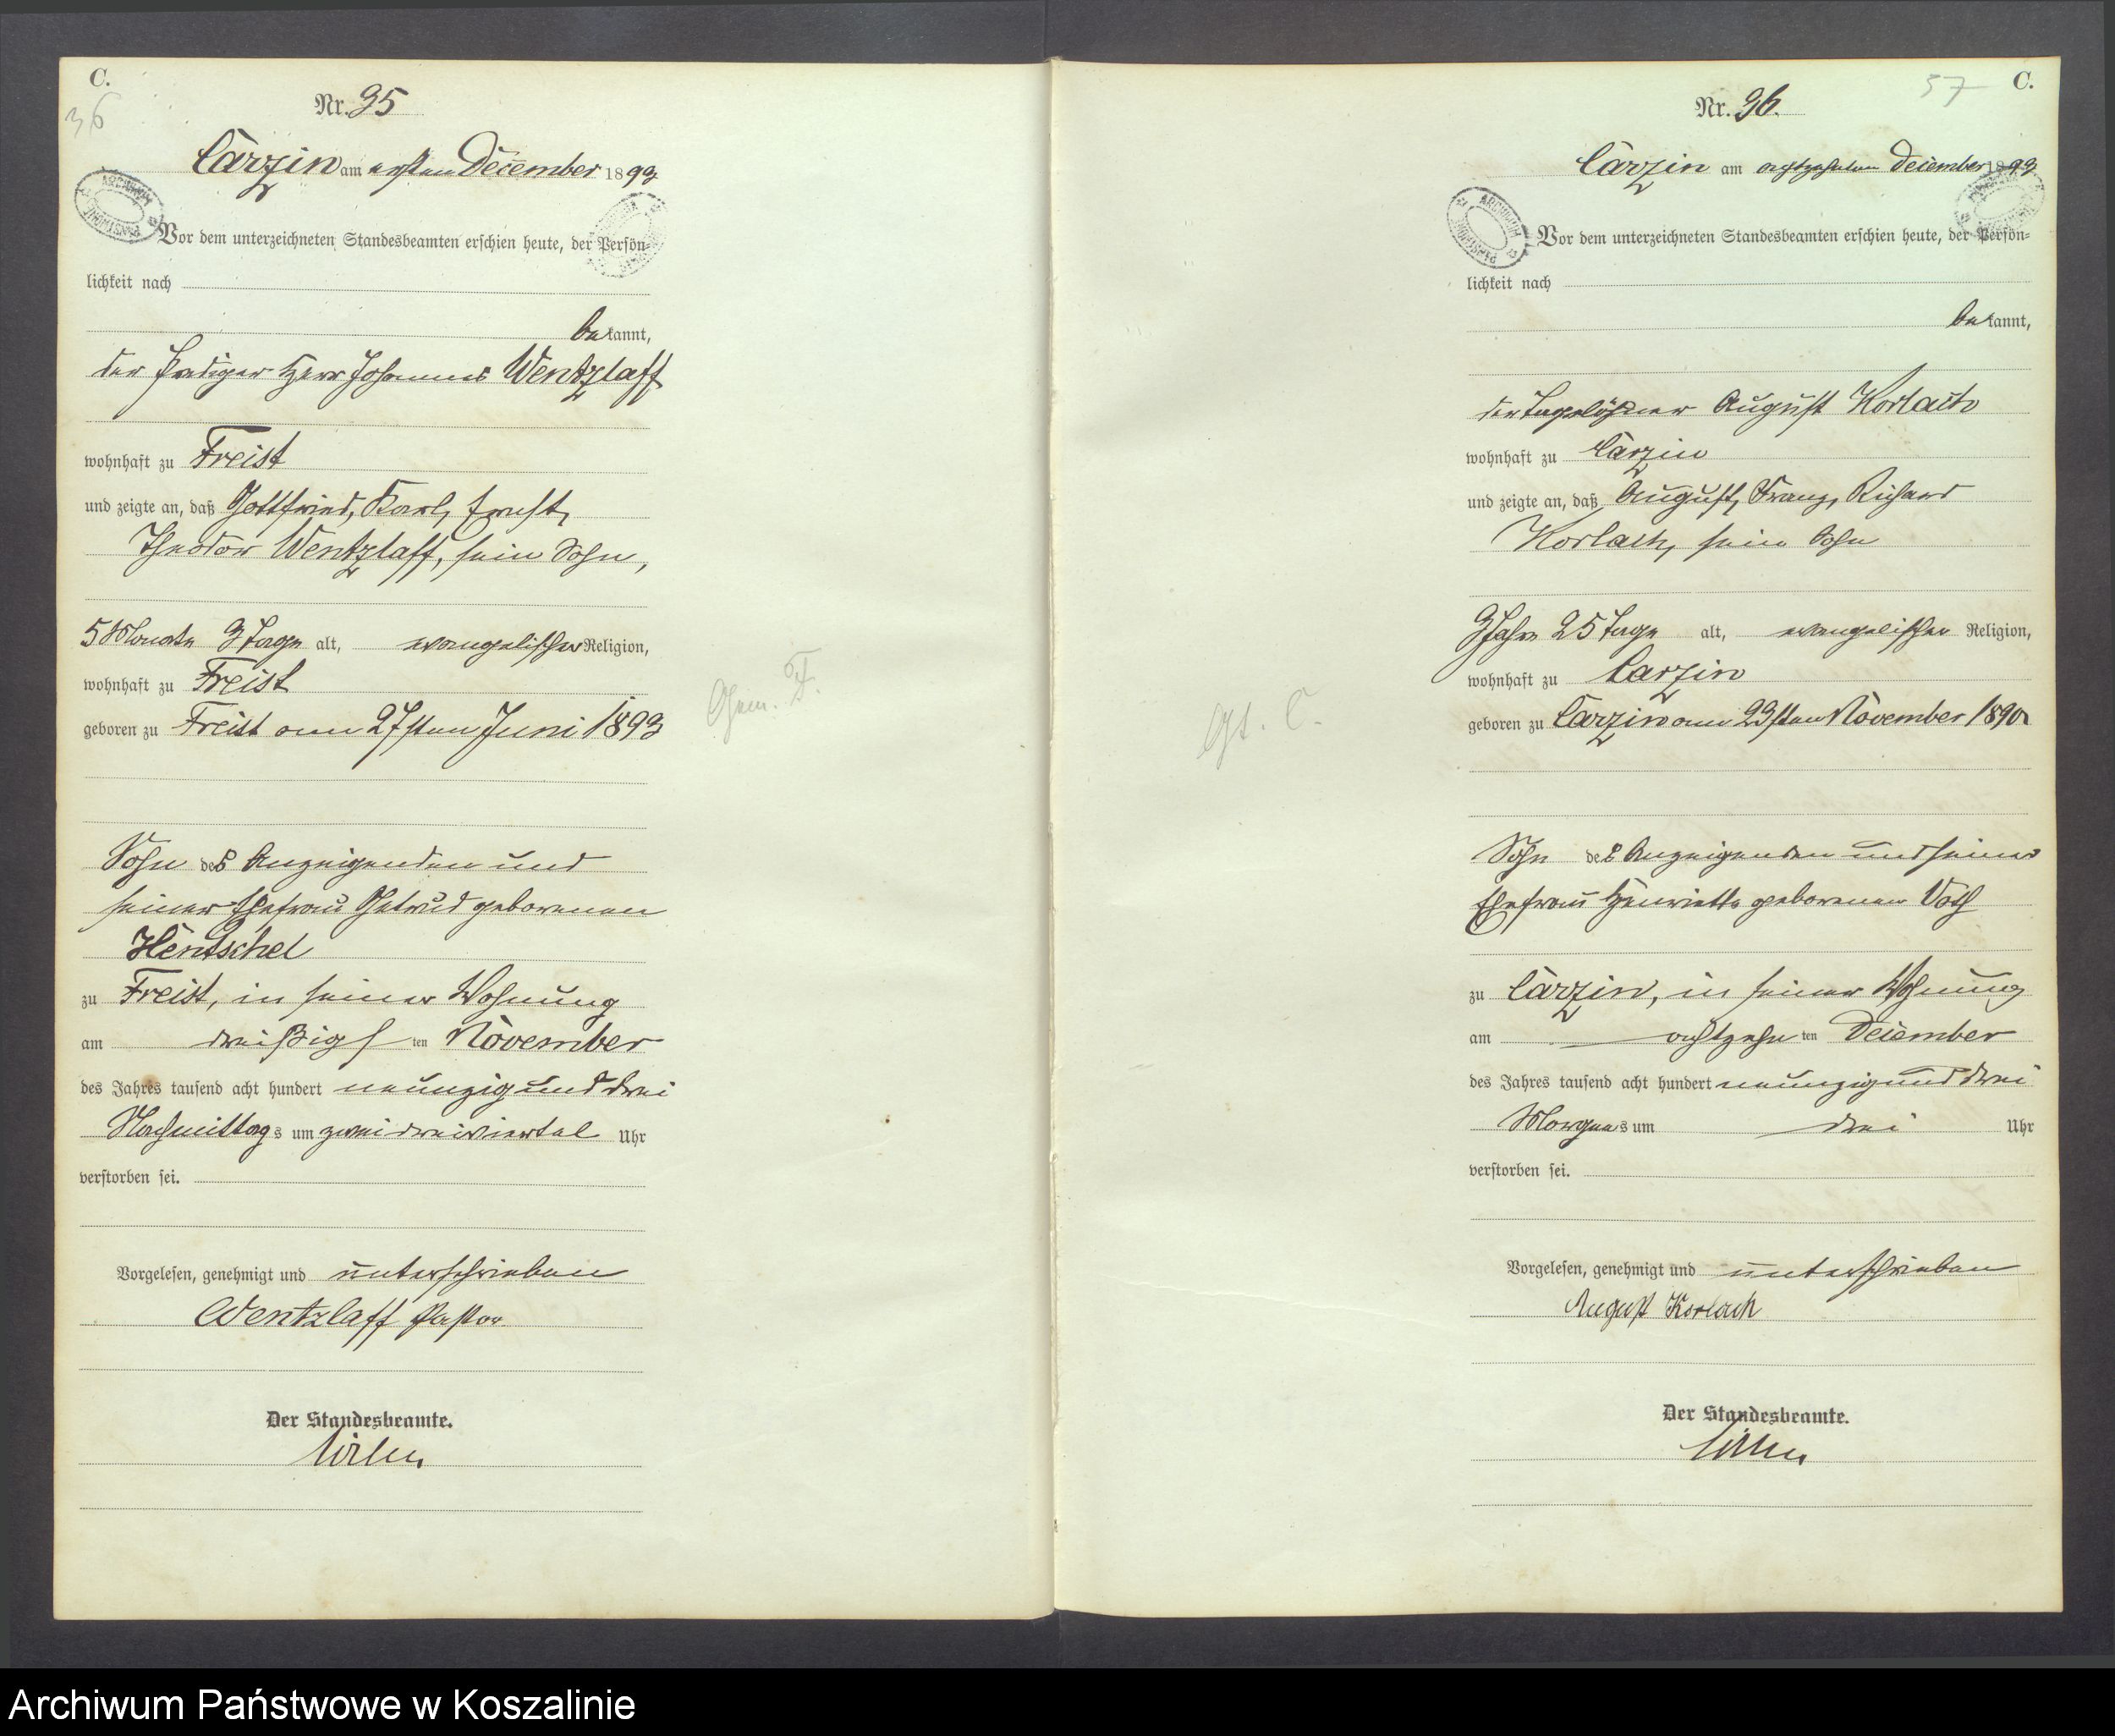 C.
36
Nr. 35
Carzin am ersten December 1893
Vor dem unterzeichneten Standesbeamten erschien heute, der Persön-
lichkeit nach
bekannt,
der Prediger Herr Johannes Wentzlaff
wohnhaft zu Freist
und zeigte an, daß Gottfried, Karl, Ernst,
Theodor Wentzlaff, sein Sohn,
5 Monate 3 Tage alt, evangelischer Religion,
wohnhaft zu Freist
geboren zu Freist am 27sten Juni 1893
Gem. F.
Sohn des Anzeigenden und
seiner Ehefrau Getrud geborenen
Hentschel
zu Freist, in seiner Wohnung
am dreißigsten November
des Jahres tausend acht hundert neunzig und drei
Nachmittags um zwei dreiviertel Uhr
verstorben sei.
Vorgelesen, genehmigt und unterschrieben
Wentzlaff Pastor
Der Standesbeamte.
57
C.
Nr. 36.
Carzin am achtzehnten December 1893
ARCHIWUM
Vor dem unterzeichneten Standesbeamten erschien heute, der Persön-
lichkeit nach
bekannt,
der Tagelöhner August Korlach
wohnhaft zu Carzin
und zeigte an, daß August, Franz, Richard
Korlach, sein Sohn
3 Jahre 25 Tage alt, evangelischer Religion,
wohnhaft zu Carzin
geboren zu Carzin am 23sten November 1890
Gt. C.
Sohn des Anzeigenden und seiner
Ehefrau Henriette geborenen Voth
zu Carzin, in seiner Wohnung
am achtzehnten December
des Jahres tausend acht hundert neunzig und drei
Morgens um drei Uhr
verstorben sei.
Vorgelesen, genehmigt und unterschrieben
August Korlach
Der Standesbeamte.
Archiwum Państwowe w Koszalinie